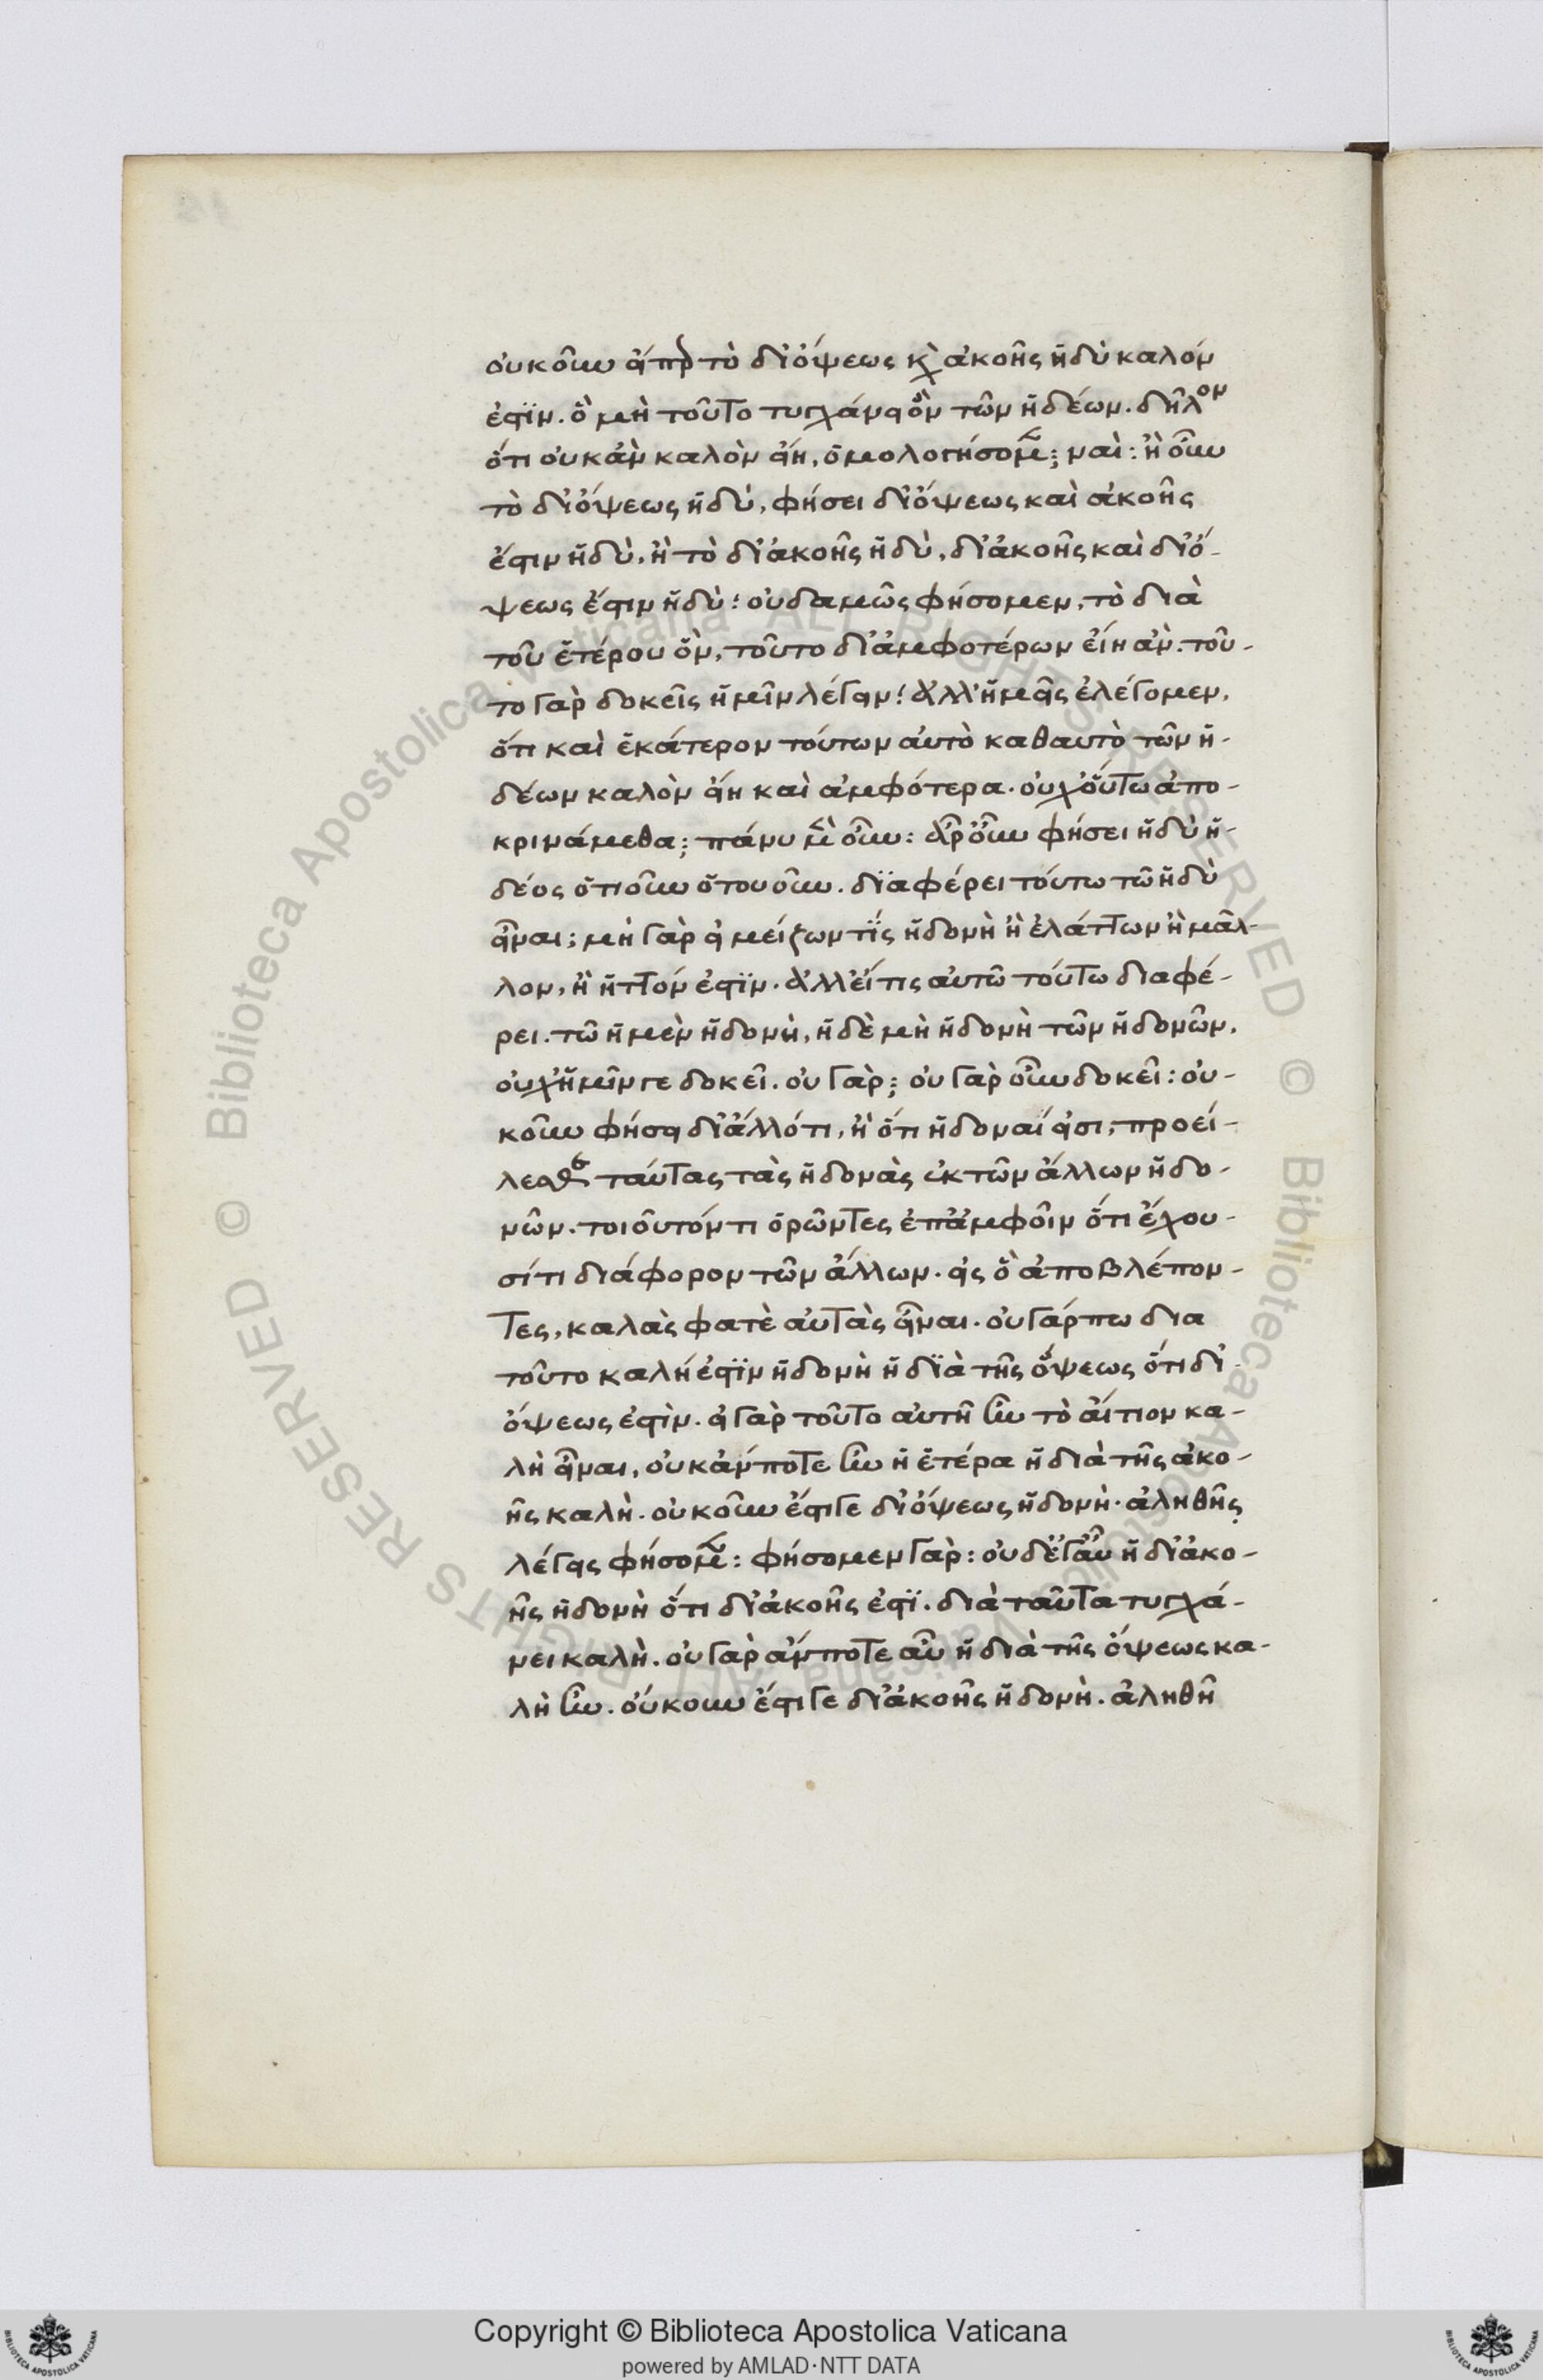 οὐκοῦν εἴπερ τὸ δι᾽ ὄψεως κ(αὶ) ἀκοῆς ἡδὺ καλόν
ἐστϊν. ὃ μὴ τοῦτο τυγχάνει ὂν τῶν ἡδέων. δῆλον
ὅτι οὐκ ἂν καλὸν εἴη, ὁμολογήσομ(εν); ναὶ: ἢ οὖν
τὸ δι᾽ ὄψεως ἡδὺ, φήσει δι᾽ ὄψεως καὶ ἀκοῆς
ἔστιν ἡδὺ, ἢ τὸ δι᾽ ἀκοῆς ἡδὺ, δι᾽ ἀκοῆς καὶ δι᾽ ὄ-
ψεως ἔστιν ἡδὺ; οὐδαμῶς φήσομεν, τὸ διὰ
τοῦ ἑτέρου ὂν, τοῦτο δι᾽ ἀμφοτέρων εἴη ἂν. τοῦ-
το γὰρ δοκεῖς ἡμῖν λέγειν; ἀλλ᾽ ἡμεῖς ἐλέγομεν,
ὅτι καὶ ἑκάτερον τούτων αὐτὸ καθαυτὸ τῶν ἡ-
δέων καλὸν εἴη καὶ ἀμφότερα. οὐχ οὕτω ἀπο-
κρινάμεθα; πάνυ μ(ὲν) οὖν: ἆρ᾽ οὖν φήσει ἡδὺ ἡ-
δέος ὁτιοῦν ὁτουοῦν. δϊαφέρει τούτω τῶ ἡδὺ
εἶναι; μὴ γὰρ εἰ μείζων τΐς ἡδονὴ ἢ ἐλάττων ἢ μᾶλ-
λον, ἢ ἧττόν ἐστϊν. ἀλλ᾽ εἴ τις αὐτῶ τούτω διαφέ-
ρει. τῶ ἡ μὲν ἡδονὴ, ἡ δὲ μὴ ἡδονὴ τῶν ἡδονῶν.
οὐχ ἡμῖν γε δοκεῖ. οὐ γὰρ; οὐ γὰρ οὖν δοκεῖ: οὐ-
κοῦν φήσει δι᾽ ἄλλό τι, ἢ ὅτι ἡδοναί εἰσι, προεί-
λεσθε ταύτας τὰς ἡδονὰς ἐκ τῶν ἄλλων ἡδο-
νῶν. τοιοῦτόν τι ὁρῶντες ἐπ᾽ ἀμφοῖν ὅτι ἔχου-
σί τι διάφορον τῶν ἄλλων. εἰς ὃ ἀποβλέπον-
τες, καλὰς φατὲ αὐτὰς εἶναι. οὐ γάρ πω δια
τοῦτο καλή ἐστϊν ἡδονὴ ἡ δϊὰ τῆς ὄψεως ὅτι δι᾽
ὄψεως ἐστὶν. εἰ γὰρ τοῦτο αὐτῆ ἦν τὸ αἴτιον κα-
λὴ εἶναι, οὐκ ἄν ποτε ἦν ἡ ἑτέρα ἡ διὰ τῆς ἀκο-
ῆς καλὴ. οὐκοῦν ἔστι γε δι᾽ ὄψεως ἡδονὴ. ἀληθῆς
λέγεις φήσομ(εν): φήσομεν γὰρ: οὐδέ γ᾽ αὖ ἡ δι᾽ ἀκο-
ῆς ἡδονὴ ὅτι δι᾽ ἀκοῆς ἐστϊ. διὰ ταῦτα τυγχά-
νει καλὴ. οὐ γὰρ ἄν ποτε αὖ ἡ διὰ τῆς ὄψεως κα-
λὴ ἦν. οὔκουν ἔστι γε δι᾽ ἀκοῆς ἡδονὴ. ἀληθῆ